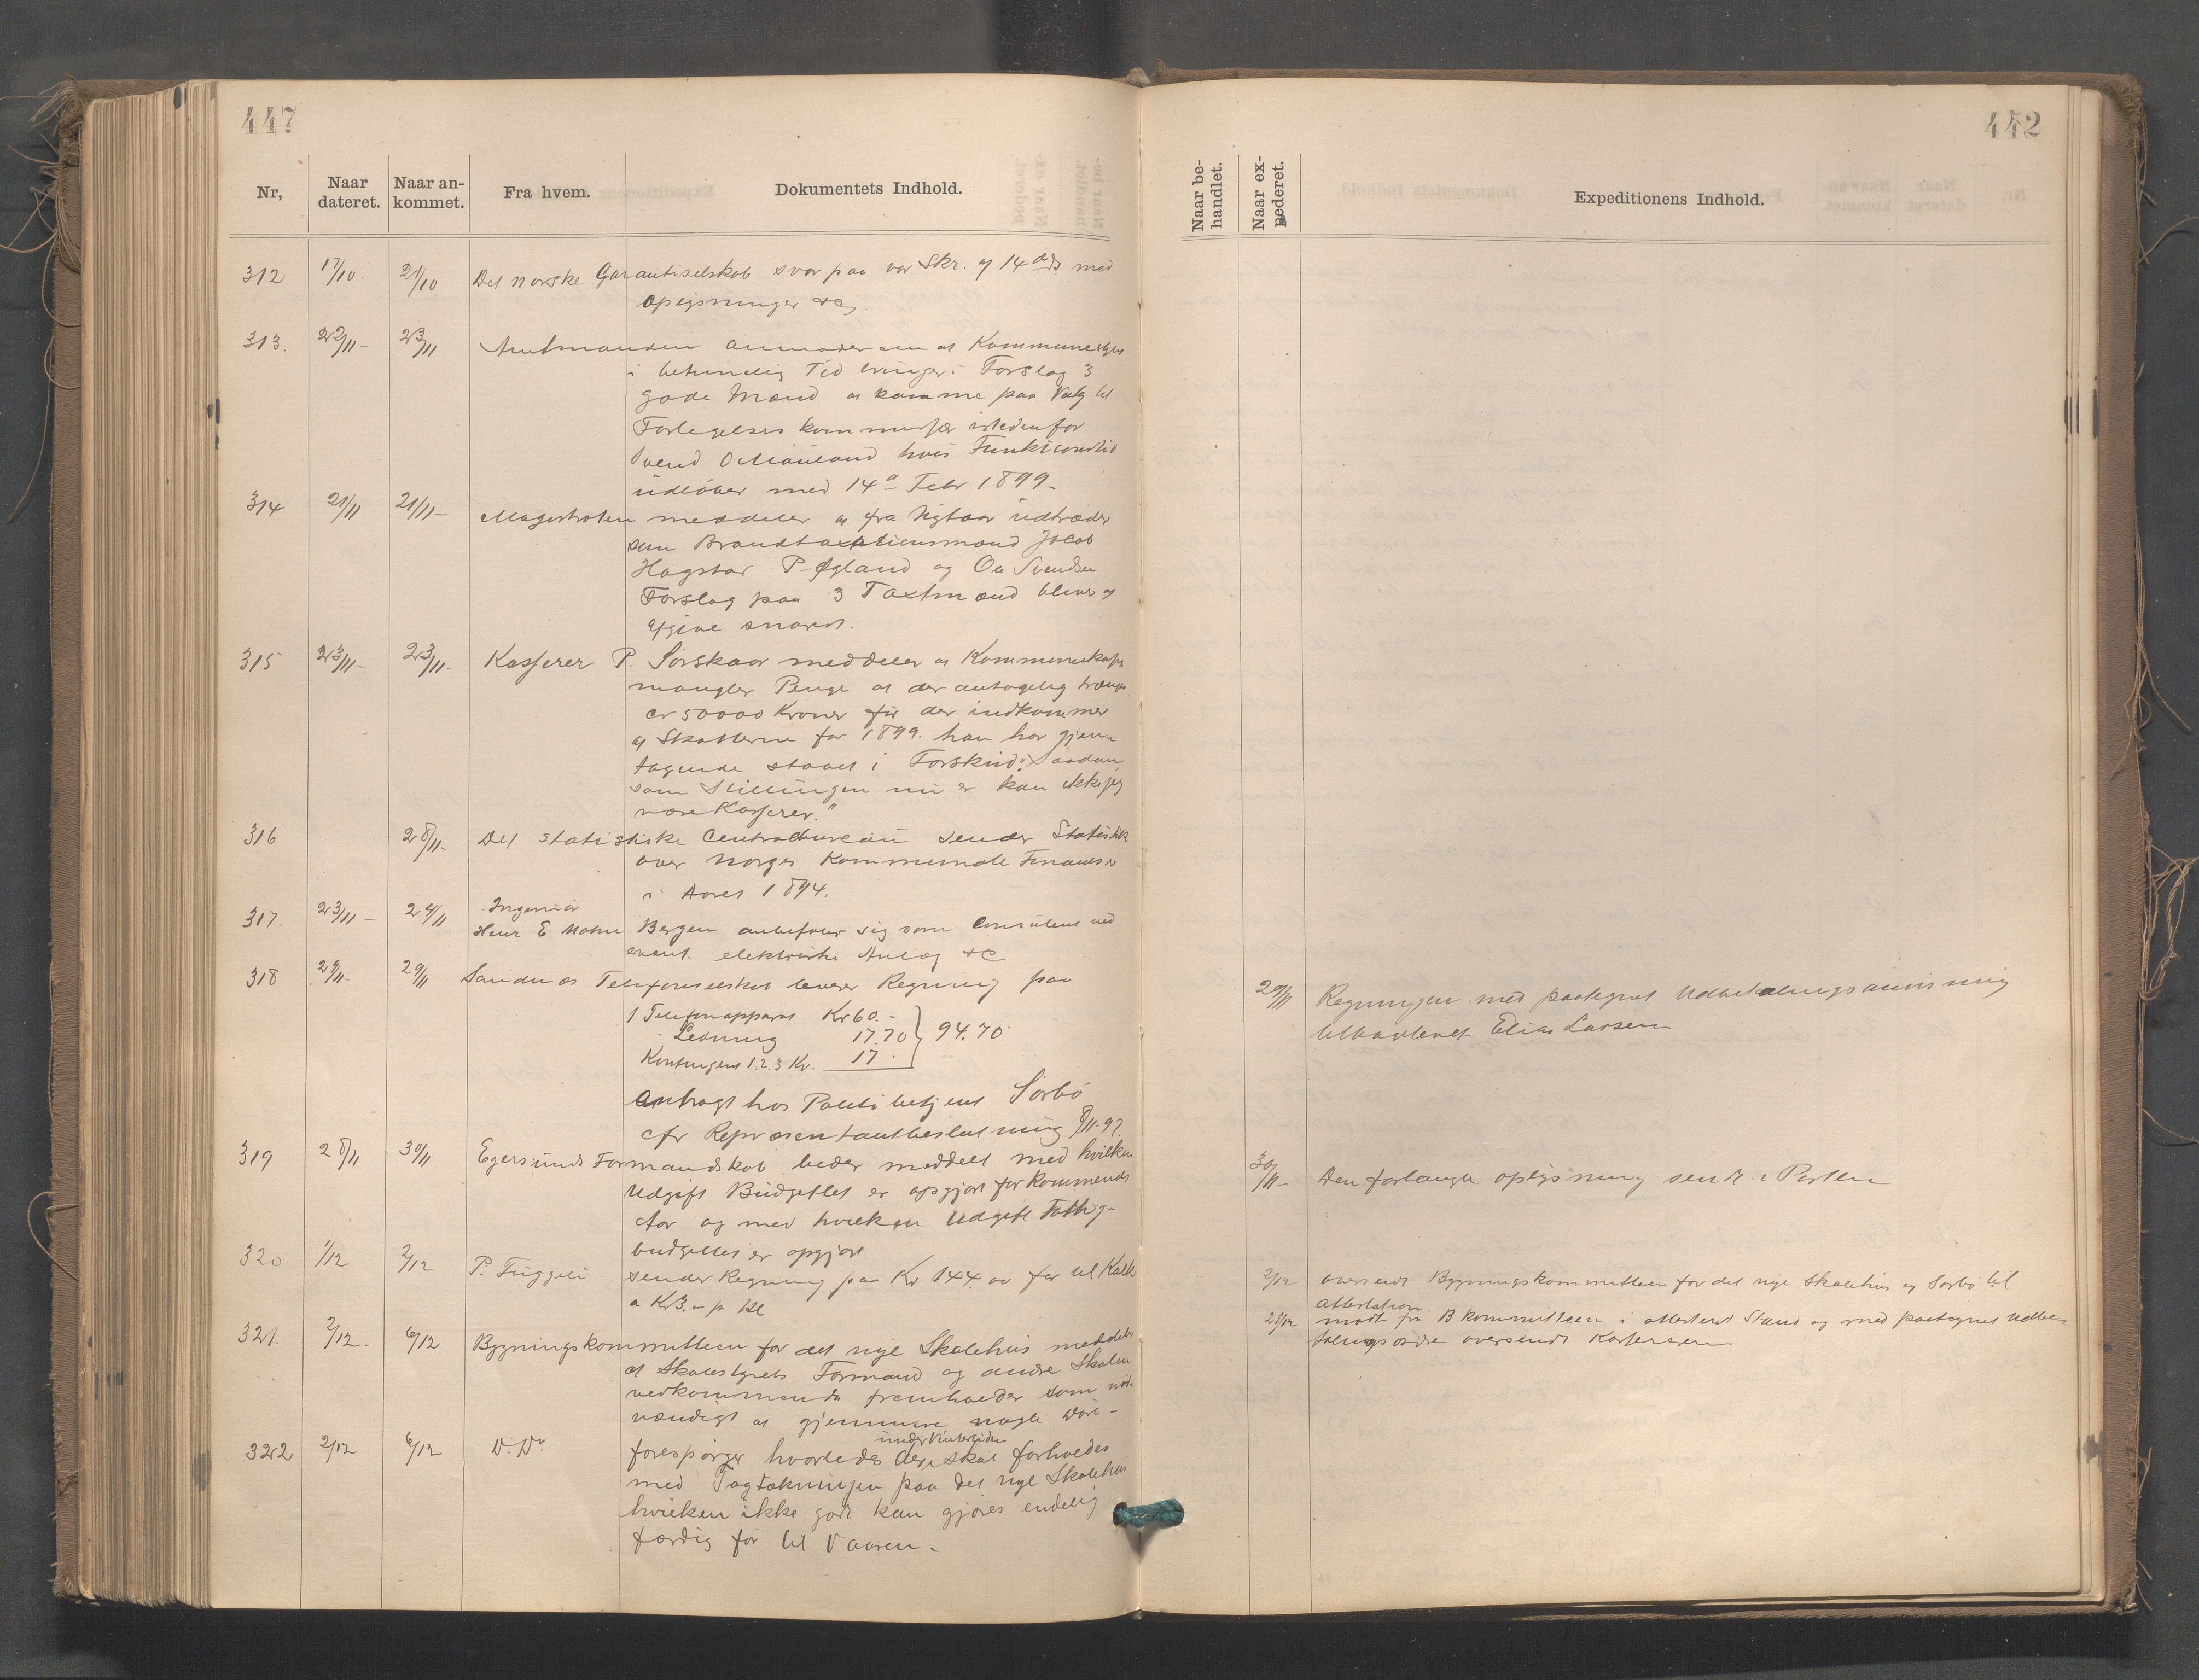 447
Nr,
Naar dateret.
Naar an-
kommet.
Fra hvem.
Dokumentets Indhold.
312 17/10. 21/10 Det norske Garantiselskab svar paa vor Skr. af 14 ds med
oplysninger &c.
313. 22/11 - 23/11 Amtmanden anmoder om at Kommunestyret
i betimelig Tid bringer i Forslag 3
gode Mænd at komme paa Valg til
Forligelses kommissær istedenfor
Svend hvis Funktionstid
udløber med 14 Febr 1899.
314 21/11 21/11 - Magistraten meddeler at fra Nytaar udtræder
som Brandtaxtionsmænd Jacob
Hagstar P. Øgland og Svendsen
Forslag paa 3 Taxtmænd blive at
afgive snarest.
315 23/11 - 23/11 - Kasserer P. Sørskaar meddeler at Kommunekassen
mangler Penge at der antagelig trænges
ca 50000 Kroner før der indkommer
af Skatterne for 1899. han har gjen-
tagende staaet i Forskud: Saadan
som Stillingen nu er kan ikke jeg
være Kasserer."
316 28/11 - Det statistiske Centralbureau sender Statistik
over Norges Kommunale Finanser
i Aaret 1894.
317. 23/11 - 24/11 Ingeniør
Henr E Mohn Bergen anbefaler sig som Consulent ved
event. elektriske Anlæg &c
318 29/11 - 29/11 Sandnes Telefonselskab leverer Regning paa
1 Telefonapparat Kr 60. -
- Ledning 17.70 94.70
Kontingent 1.2.3 Kv. 17
anbragt hos Politibetjent Sørbø
cfr Repræsentantbeslutning 8/11-97.
319 28/11 30/11 Egersunds Formandskab beder meddelt med hvilken
Udgift Budgettet er opgjort for kommende
Aar og med hvilken Udgift Fattig-
budgettet er opgjort
320 1/12 2/12 P. Figgeli sender Regning paa Kr 144.00 for Kalk
a Kr 3. - pr Hl
321. 2/12 - 6/12 Bygningskommitteen for det nye Skolehus meddeler
at Skolestyrets Formand og andre Skolen
vedkommende fremholder som nød-
vændigt at gjemmure nogle Døre -
322 2/12 6/12 D. D.
under Vintertiden
forespørger hvorledes der skal forholdes
med Tagtækningen paa det nye Skolehus
hvilken ikke godt kan gjøres endelig
færdig før til Vaaren.
442
Naar be-
handlet.
Naar ex-
pederet.
Expeditionens Indhold.
29/11 Regningen med paategnet Udbetalingsanvisning
tilbagelevet Elias Larsen
30/11 - Den forlangte oplysning sendt i Posten
2/12 oversendt Bygningskommitteen for det nye Skolehus og Sørbø til
attestation.
28/12 modt fra B kommitteen i attesteret Stand og med paategnet Udbe-
talingsordre oversendt Kassereren